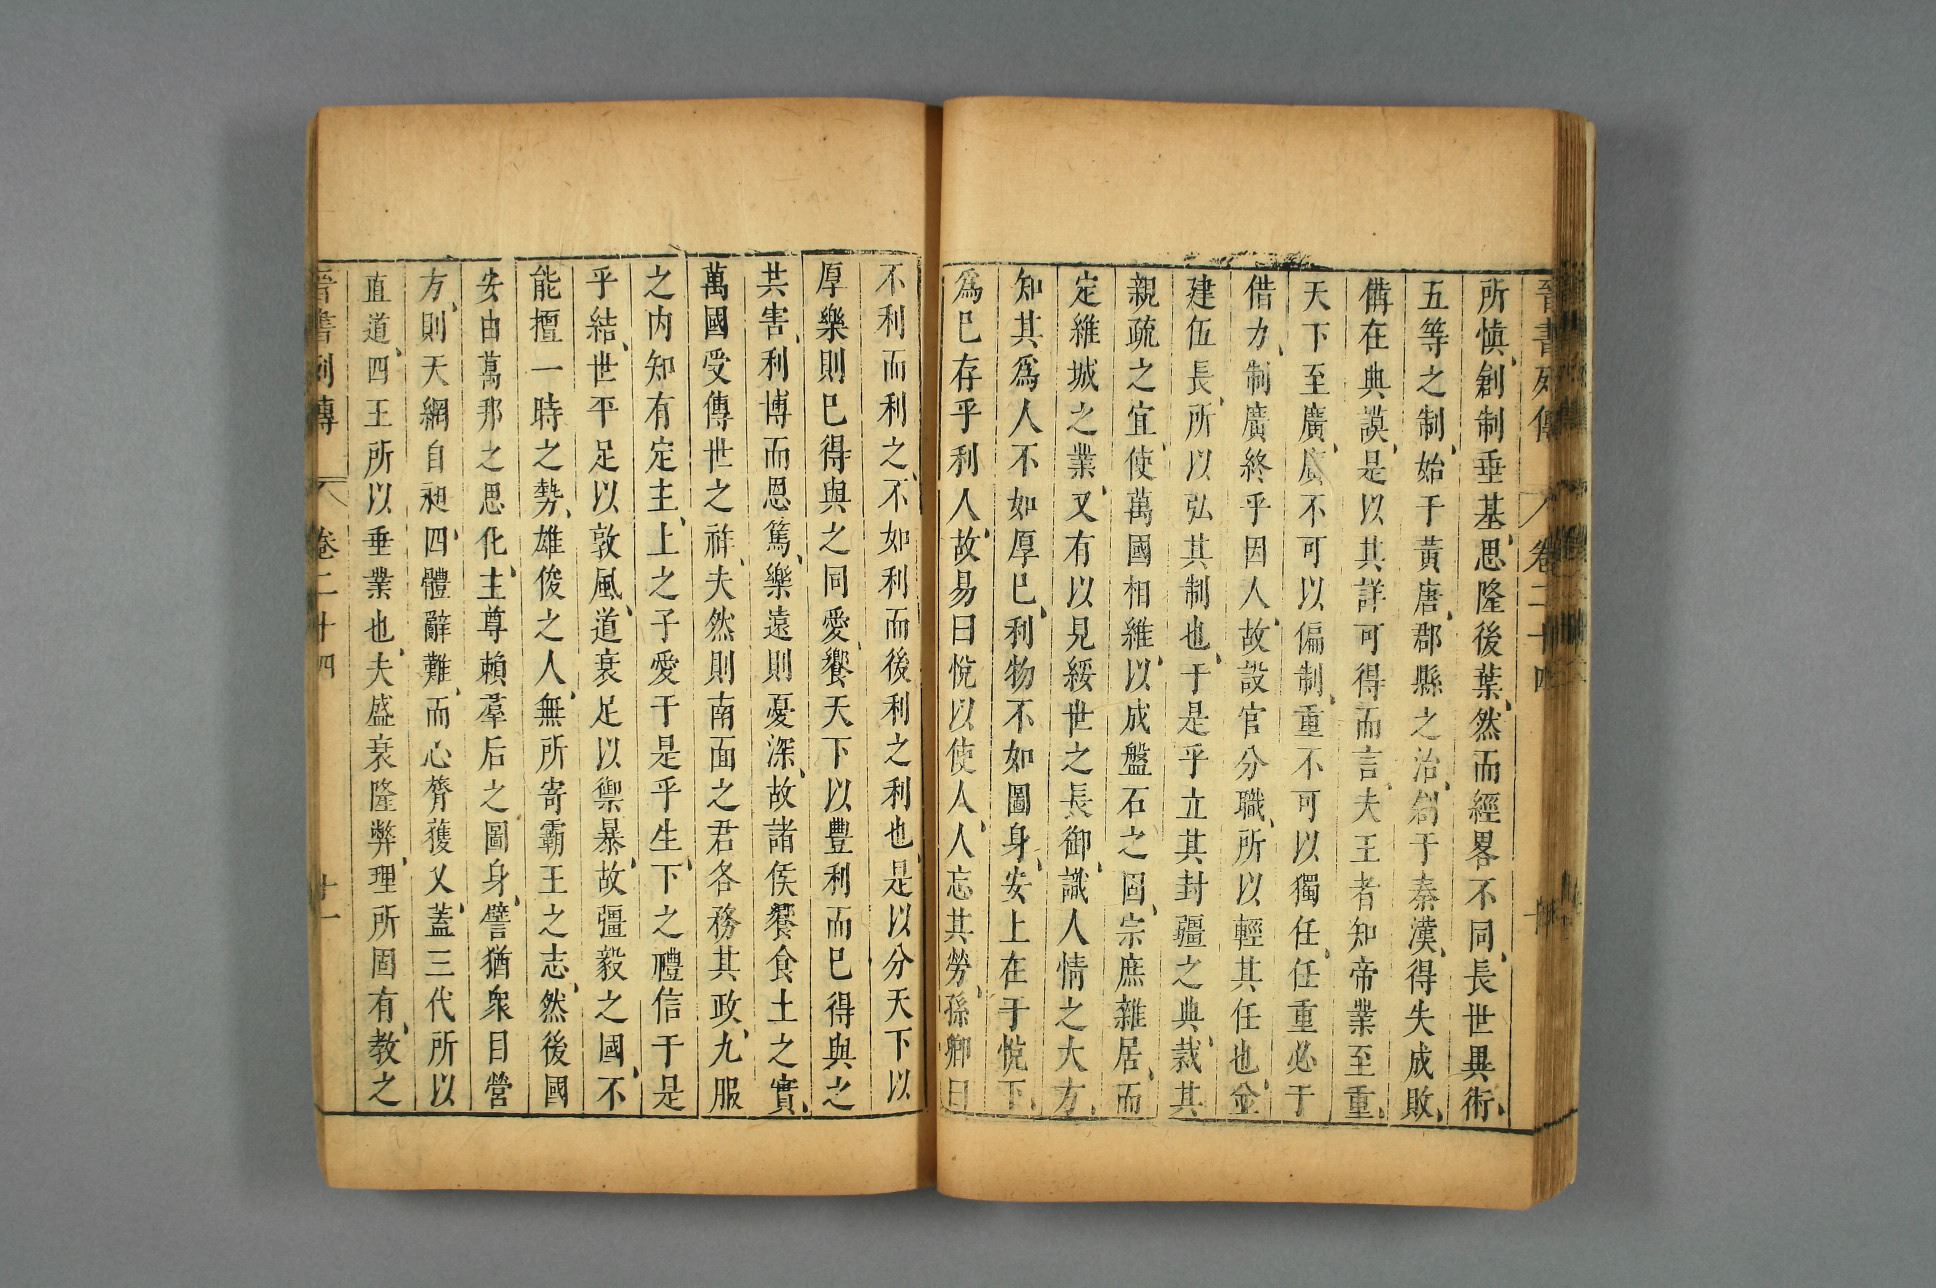 晉書列傳 卷二十四
所慎創制垂基思隆後葉然而經畧不同長世異術
五等之制始于黃唐郡縣之治創于秦漢得失成敗
備在典謨是以其詳可得而言夫王者知帝業至重
天下至廣廣不可以偏制重不可以獨任任重必于
借力制廣終乎因人故設官分職所以輕其任也並
建伍長所以弘其制也于是乎立其封疆之典裁其
親疏之宜使萬國相維以成盤石之固宗庶雜居而
定維城之業又有以見綏世之長御識人情之大方
知其爲人不如厚己利物不如圖身安上在于悅下
爲己存乎利人故易曰悅以使人人忘其勞孫卿曰
不利而利之不如利而後利之利也是以分天下以
厚樂則已得與之同愛饗天下以豊利而已得與之
共害利博而恩篤樂遠則憂深故諸侯饗食土之實
萬國受傳世之祚夫然則南面之君各務其政九服
之内知有定主上之子愛于是乎生下之禮信于是
乎結世平足以敦風道衰足以禦暴故彊毅之國不
能擅一時之勢雄俊之人無所寄霸王之志然後國
安由萬邦之思化主尊賴羣后之圖身譬猶衆目營
方則天網自昶四體辭難而心膂獲乂蓋三代所以
直道四王所以垂業也夫盛衰隆弊理所固有教之
晉書列傳 卷二十四 廿一